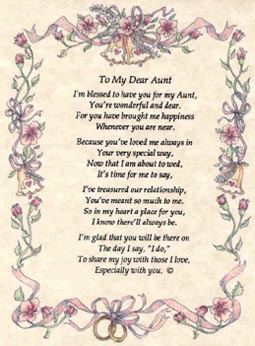 To My Dear Aunt
I'm blessed to have you for my Aunt,
You're wonderful and dear.
For you have brought me happiness
Whenever you are near.
Because you've loved me always in
Your very special way,
Now that I am about to wed,
It's time for me to say,
I've treasured our relationship,
You've meant so much to me.
So in my heart a place for you,
I know there'll always be.
I'm glad that you will be there on
The day I say, "I do,"
To share my joy with those I love,
Especially with you. ©